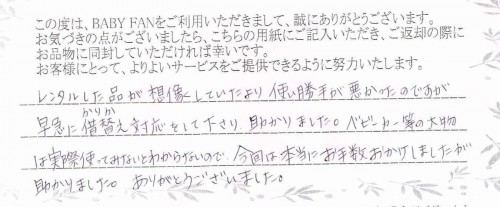 この度は、BABY FANをご利用いただきまして、誠にありがとうございます。
お気づきの点がございましたら、こちらの用紙にご記入いただき、ご返却の際に
お品物に同封していただければ幸いです。
お客様にとって、よりよいサービスをご提供できるように努力いたします。
レンタルした品が想像していたより使い勝手が悪かったのですが
かりか
早急に借替え対応をして下さり、助かりました。ベビーカー等の大物
は実際使ってみないとわからないので、今回は本当にお手数おかけしましたが
助かりました。ありがとうございました。